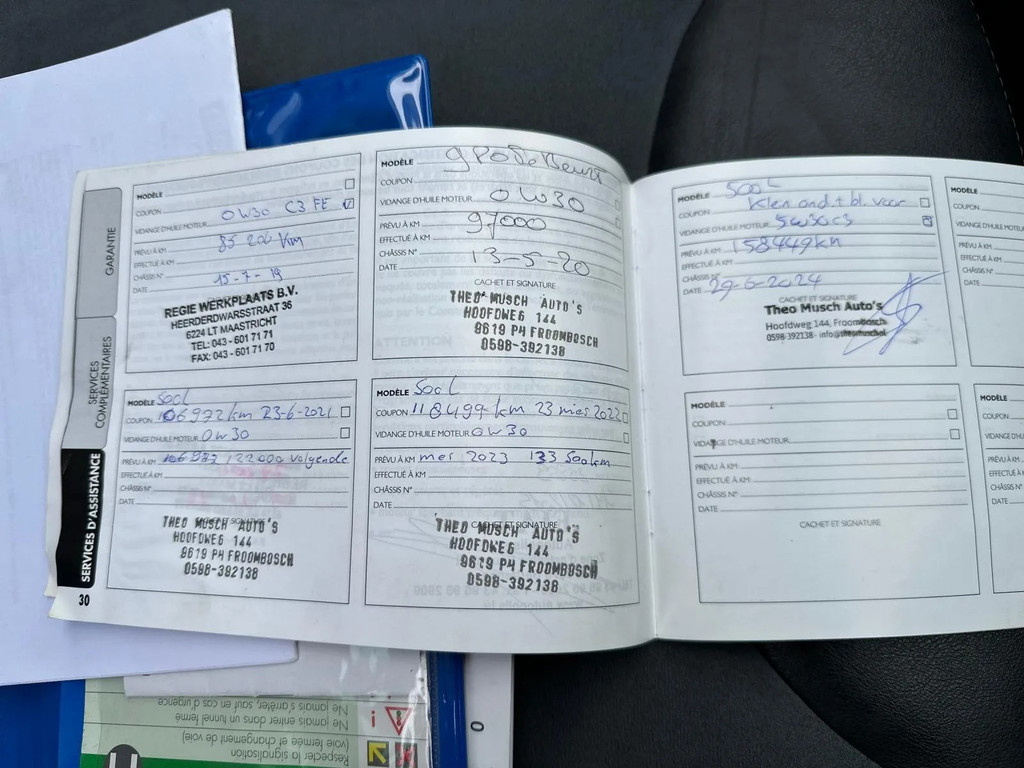 GARANTIE
SERVICES
COMPLÉMENTAIRES
SERVICES D'ASSISTANCE
30
MODÈLE
COUPON
VIDANGE D'HUILE MOTEUR 0W30 C3 FE
PRÉVU À KM
EFFECTUÉ À KM 85 200 km
CHÂSSIS N°
DATE 15-7-19
REGIE WERKPLAATS B.V.
HEERDERDWARSSTRAAT 36
6224 LT MAASTRICHT
TEL: 043 - 601 71 71
FAX: 043 - 601 71 70
MODÈLE
COUPON
VIDANGE D'HUILE MOTEUR 0W30
PRÉVU À KM
EFFECTUÉ À KM 97000
CHÂSSIS N°
DATE 13-5-20
CACHET ET SIGNATURE
THEO MUSCH AUTO'S
HOOFDWEG 144
9619 PH FROOMBOSCH
0598-392138
MODÈLE 500L
COUPON 106972 km 23-6-2021
VIDANGE D'HUILE MOTEUR 0W30
PRÉVU À KM 122000 volgende
EFFECTUÉ À KM
CHÂSSIS N°
DATE
CACHET ET SIGNATURE
THEO MUSCH AUTO'S
HOOFDWEG 144
9619 PH FROOMBOSCH
0598-392138
MODÈLE 500L
COUPON 118499 km 23 mei 2022
VIDANGE D'HUILE MOTEUR 0W30
PRÉVU À KM mei 2023 133 500km
EFFECTUÉ À KM
CHÂSSIS N°
DATE
CACHET ET SIGNATURE
THEO MUSCH AUTO'S
HOOFDWEG 144
9619 PH FROOMBOSCH
0598-392138
MODÈLE 500L
COUPON Klein ond. + bl. voor
VIDANGE D'HUILE MOTEUR 5W30C3
PRÉVU À KM 158449km
EFFECTUÉ À KM
CHÂSSIS N°
DATE 29-6-2024
CACHET ET SIGNATURE
Theo Musch Auto's
Hoofdweg 144, Froombosch
0598-392138 - info@theomusch.nl
MODÈLE
COUPON
VIDANGE D'HUILE MOTEUR
PRÉVU À KM
EFFECTUÉ À KM
CHÂSSIS N°
DATE
CACHET ET SIGNATURE
MODÈLE
COUPON
VIDANGE D'H
PRÉVU À KM
EFFECTUÉ À
CHÂSSIS N°
DATE
MODÈL
COUPON
VIDANGE
PRÉVU À
EFFECTU
CHÂSSIS
DATE
Respecter la signalisation
(voie fermée et changement de voie)
Ne jamais entrer dans un tunnel fermé
Ne jamais s'arrêter, sauf en cas d'urgence